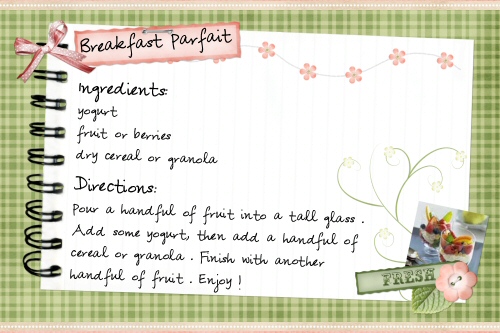 Breakfast Parfait
Ingredients:
yogurt
fruit or berries
dry cereal or granola
Directions:
Pour a handful of fruit into a tall glass .
Add some yogurt, then add a handful of
cereal or granola . Finish with another
handful of fruit . Enjoy !
FRESH